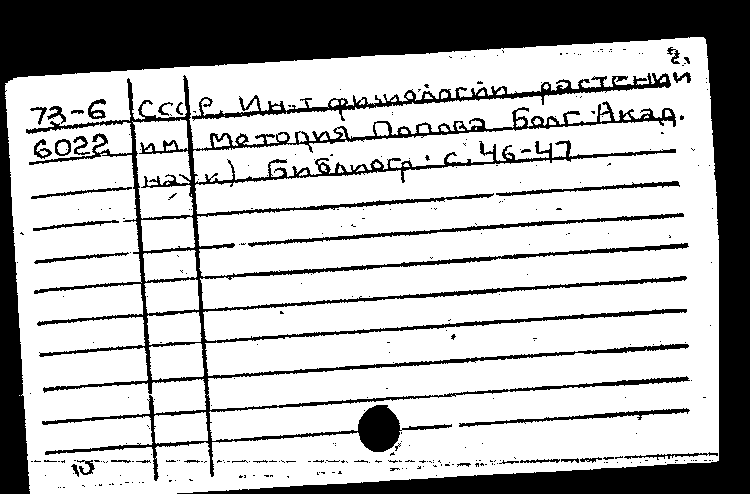 2.
73-6 СССР. Ин-т физиологии растений
6022 им. Методия Попова Болг. Акад.
наук). Библиогр. с. 46-47
10